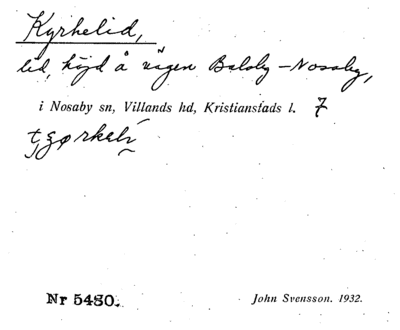 Kyrhelid,
lid, höjd å vägen Balsby-Nosaby,
i Nosaby sn, Villands hd, Kristianstads l. 7
Nr 5480. John Svensson. 1932.